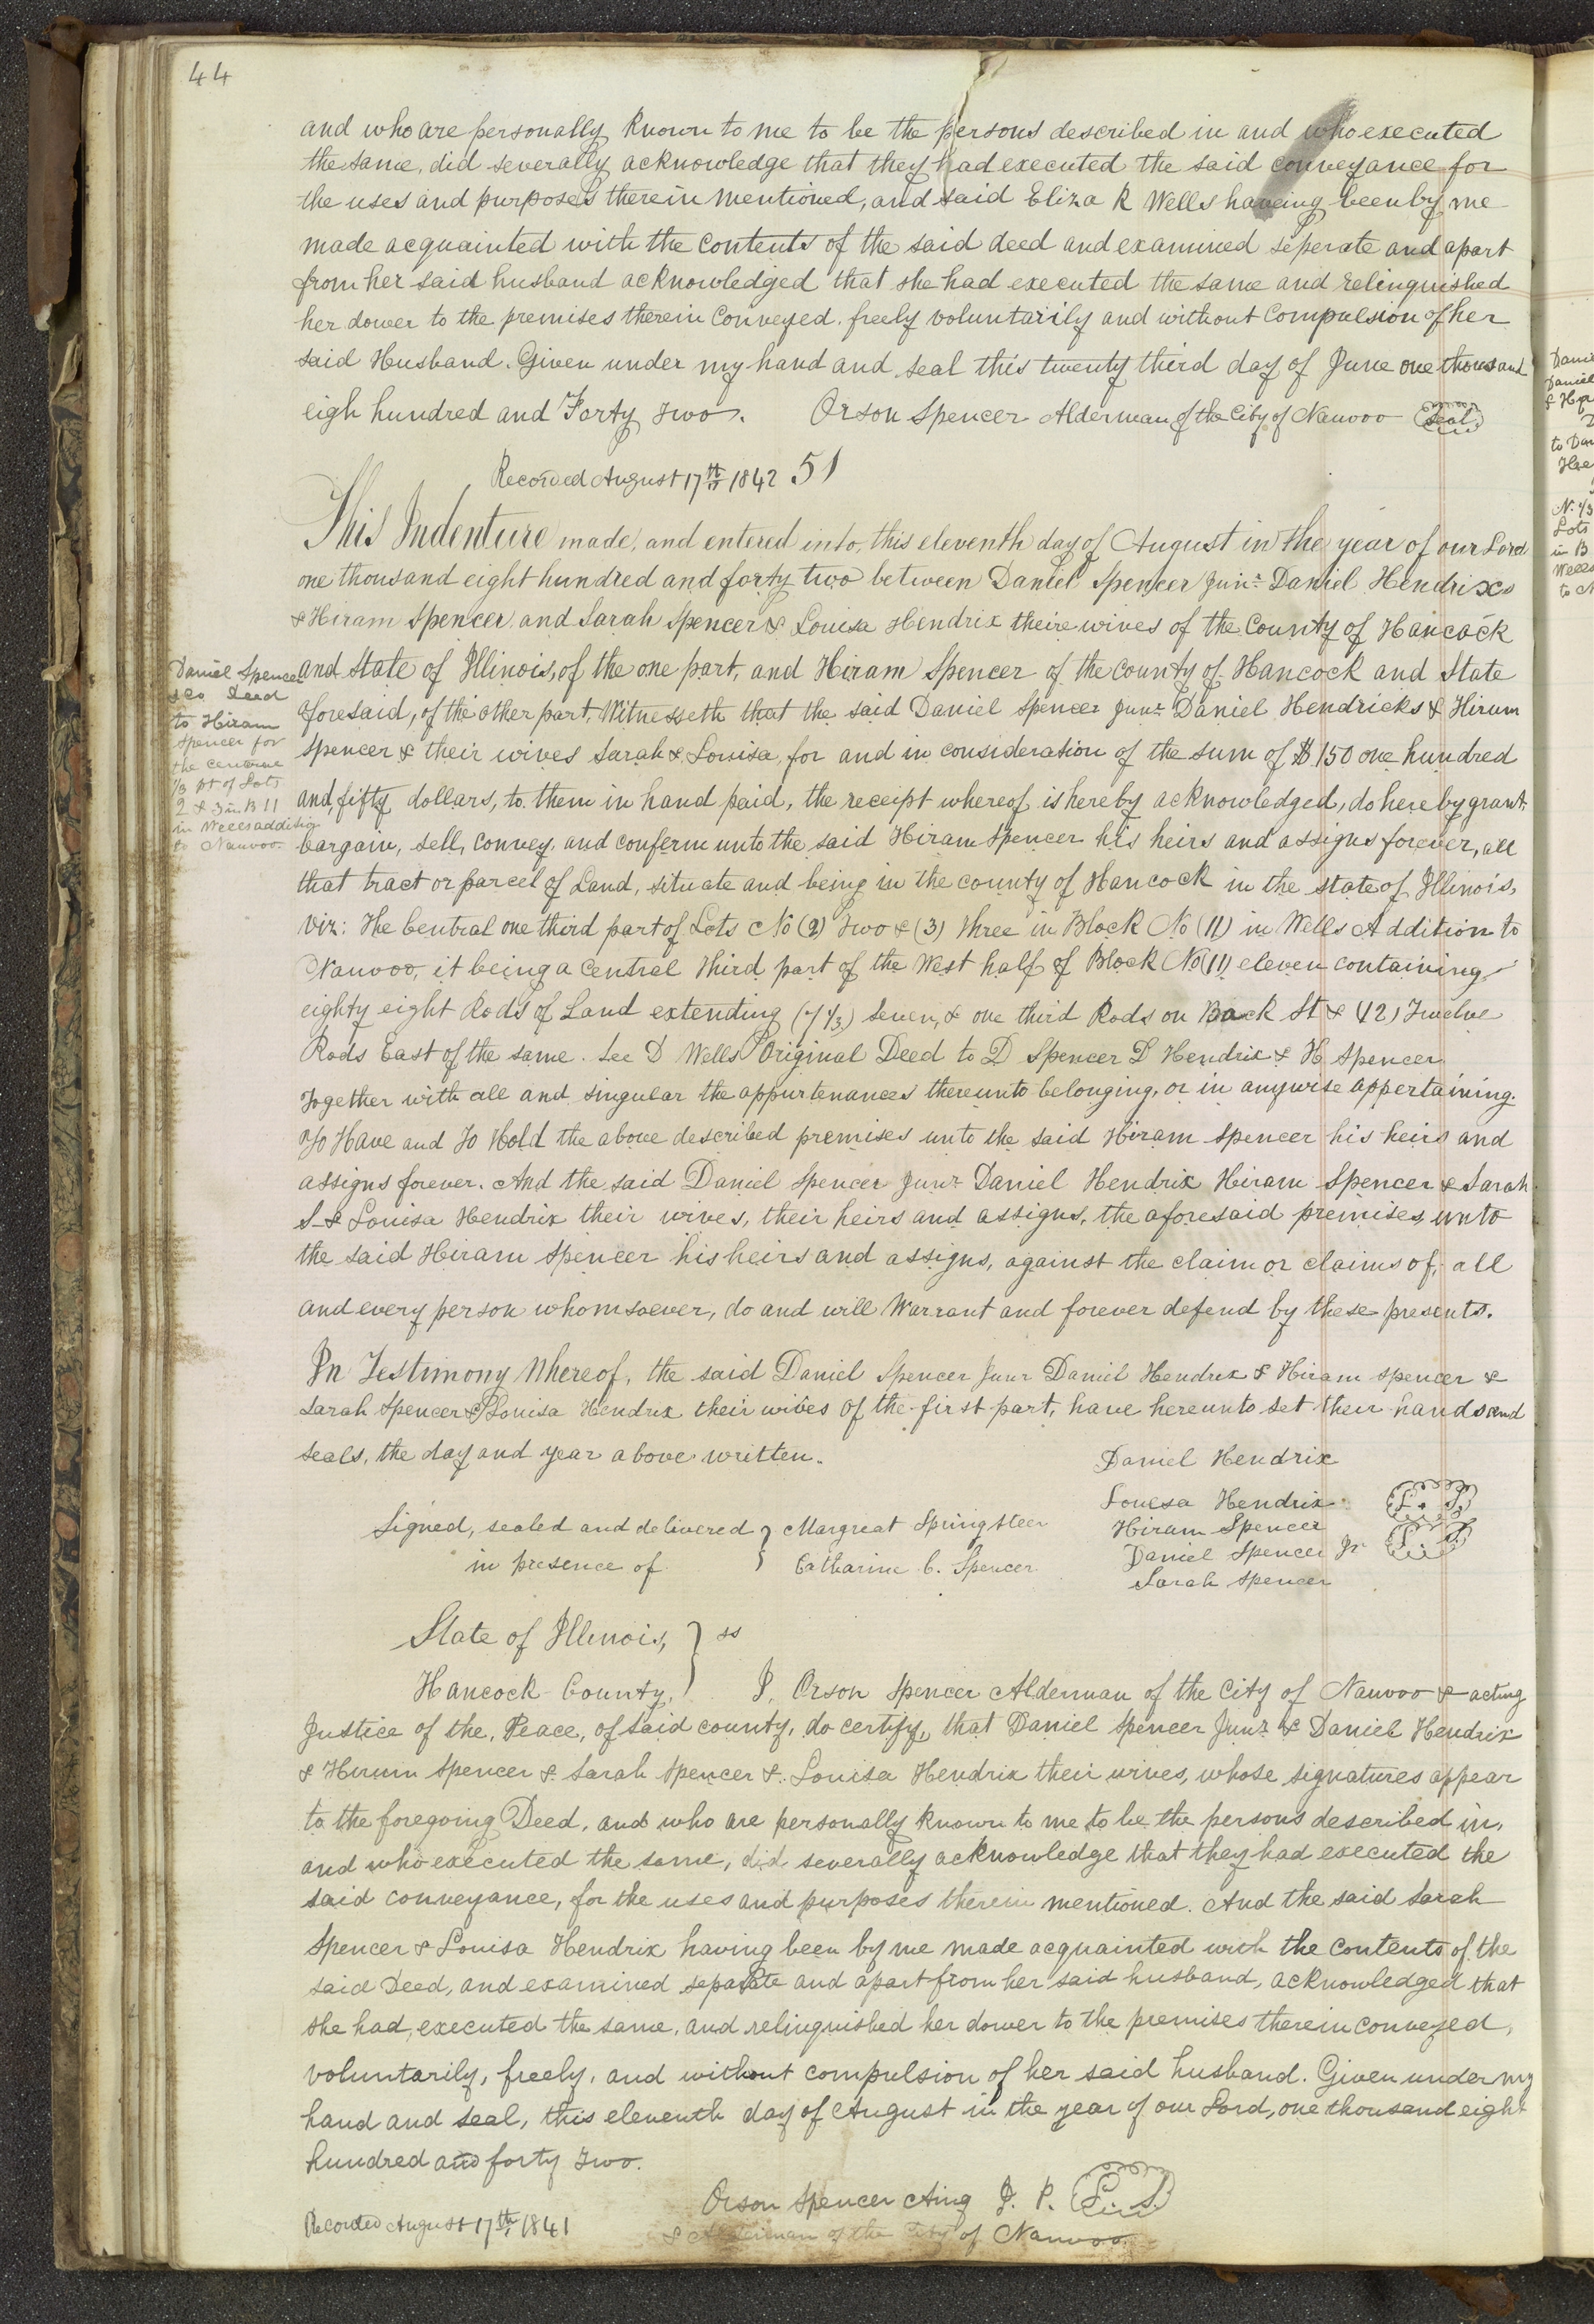 44
and who are personally known to me to be the persons described in and who executed
the same, did severally acknowledge that they had executed the said conveyance for
the uses and purposes therein mentioned, and said Eliza R Wells having been by me
made acquainted with the contents of the said deed and examined seperate and apart
from her said husband acknowledged that she had executed the same and relinquished
her dower to the premises therein conveyed, freely voluntarily and without compulsion of her
said Husband. Given under my hand and seal this twenty third day of June one thousand
eigh hundred and Forty Two. Orson Spencer Alderman of the City of Nauvoo Seal
Recorded August 17th 1842 51
This Indenture made, and entered into, this eleventh day of August in the year of our Lord
one thousand eight hundred and forty two between Daniel Spencer Junr Daniel Hendrixs
& Hiram Spencer and Sarah Spencer & Louisa Hendrix theire wives of the County of Hancock
and State of Illinois, of the one part, and Hiram Spencer of the county of Hancock and State
aforesaid, of the other part, Witnesseth that the said Daniel Spencer Junr Daniel Hendricks & Hirum
Spencer & their wives Sarah & Louisa, for and in consideration of the sum of $150 one hundred
and fifty dollars, to them in hand paid, the receipt whereof is hereby acknowledged, do hereby grant,
bargain, sell, convey, and conferm unto the said Hiram Spencer his heirs and assigns forever, all
that tract or parcel of Land, situate and being in the county of Hancock in the state of Illinois,
viz: The Central one third part of Lots No (2) Two & (3) Three in Block No (11) in Wells Addition to
Nauvoo, it being a Central Third part of the West half of Block No (11) eleven containing
eighty eight Rods of Land extending (7 1/3) Seven, & one third Rods on Back St & (12) Twelve
Rods East of the same. See D Wells Original Deed to D Spencer D Hendrix & H Spencer
Together with all and singular the appurtenances thereunto belonging, or in anywise appertaining.
To Have and To Hold the above described premises unto the said Hiram Spencer his heirs and
assigns forever. And the said Daniel Spencer Junr Daniel Hendrix Hiram Spencer & Sarah
S & Louisa Hendrix their wives, their heirs and assigns, the aforesaid premises, unto
the said Hiram Spencer his heirs and assigns, against the claim or claims of, all
and every person whomsoever, do and will Warrant and forever defend by these presents.
In Testimony Whereof, the said Daniel Spencer Junr Daniel Hendrix & Hiram Spencer &
Sarah Spencer & Louisa Hendrix their wives of the first part, have hereunto set their hands and
seals, the day and year above written.
Daniel Spencer
&co Deed
to Hiram
Spencer for
the centerne
1/3 pt of Lots
2 & 3 in B 11
in Wells addition
to Nauvoo
Daniel Hendrix
Louesa Hendrix L. S.
Signed, sealed and delivered } Margreat Springsteen
in presence of } Catharine C. Spencer
Hiram Spencer
Daniel Spencer Jr L. S.
Sarah Spencer
State of Illinois, } ss
Hancock County, } I, Orson Spencer Alderman of the City of Nauvoo & acting
Justice of the, Peace, of said county, do certify, that Daniel Spencer Junr & Daniel Hendrix
& Hirum Spencer & Sarah Spencer & Louisa Hendrix their wives, whose signatures appear
to the foregoing Deed, and who are personally known to me to be the persons described in,
and who executed the same, did severally acknowledge that they had executed the
said conveyance, for the uses and purposes therein mentioned. And the said Sarah
Spencer & Louisa Hendrix having been by me made acquainted with the contents of the
said Deed, and examined separate and apart from her said husband, acknowledged that
she had executed the same, and relinquished her dower to the premises therein conveyed,
voluntarily, freely, and without compulsion of her said husband. Given under my
hand and seal, this eleventh day of August in the year of our Lord, one thousand eight
hundred and forty two.
Orson Spencer Acting J. P. L. S.
& Alderman of the City of Nauvoo
Recorded August 17th 1841
Danie
Daniel
to Dan
N. 1/3
Lots
in B
Wells